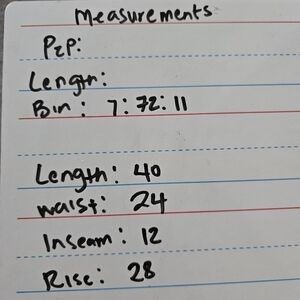 Measurements
P2P:
Length:
Bin: 7:72:11
Length: 40
waist: 24
Inseam: 12
Rise: 28